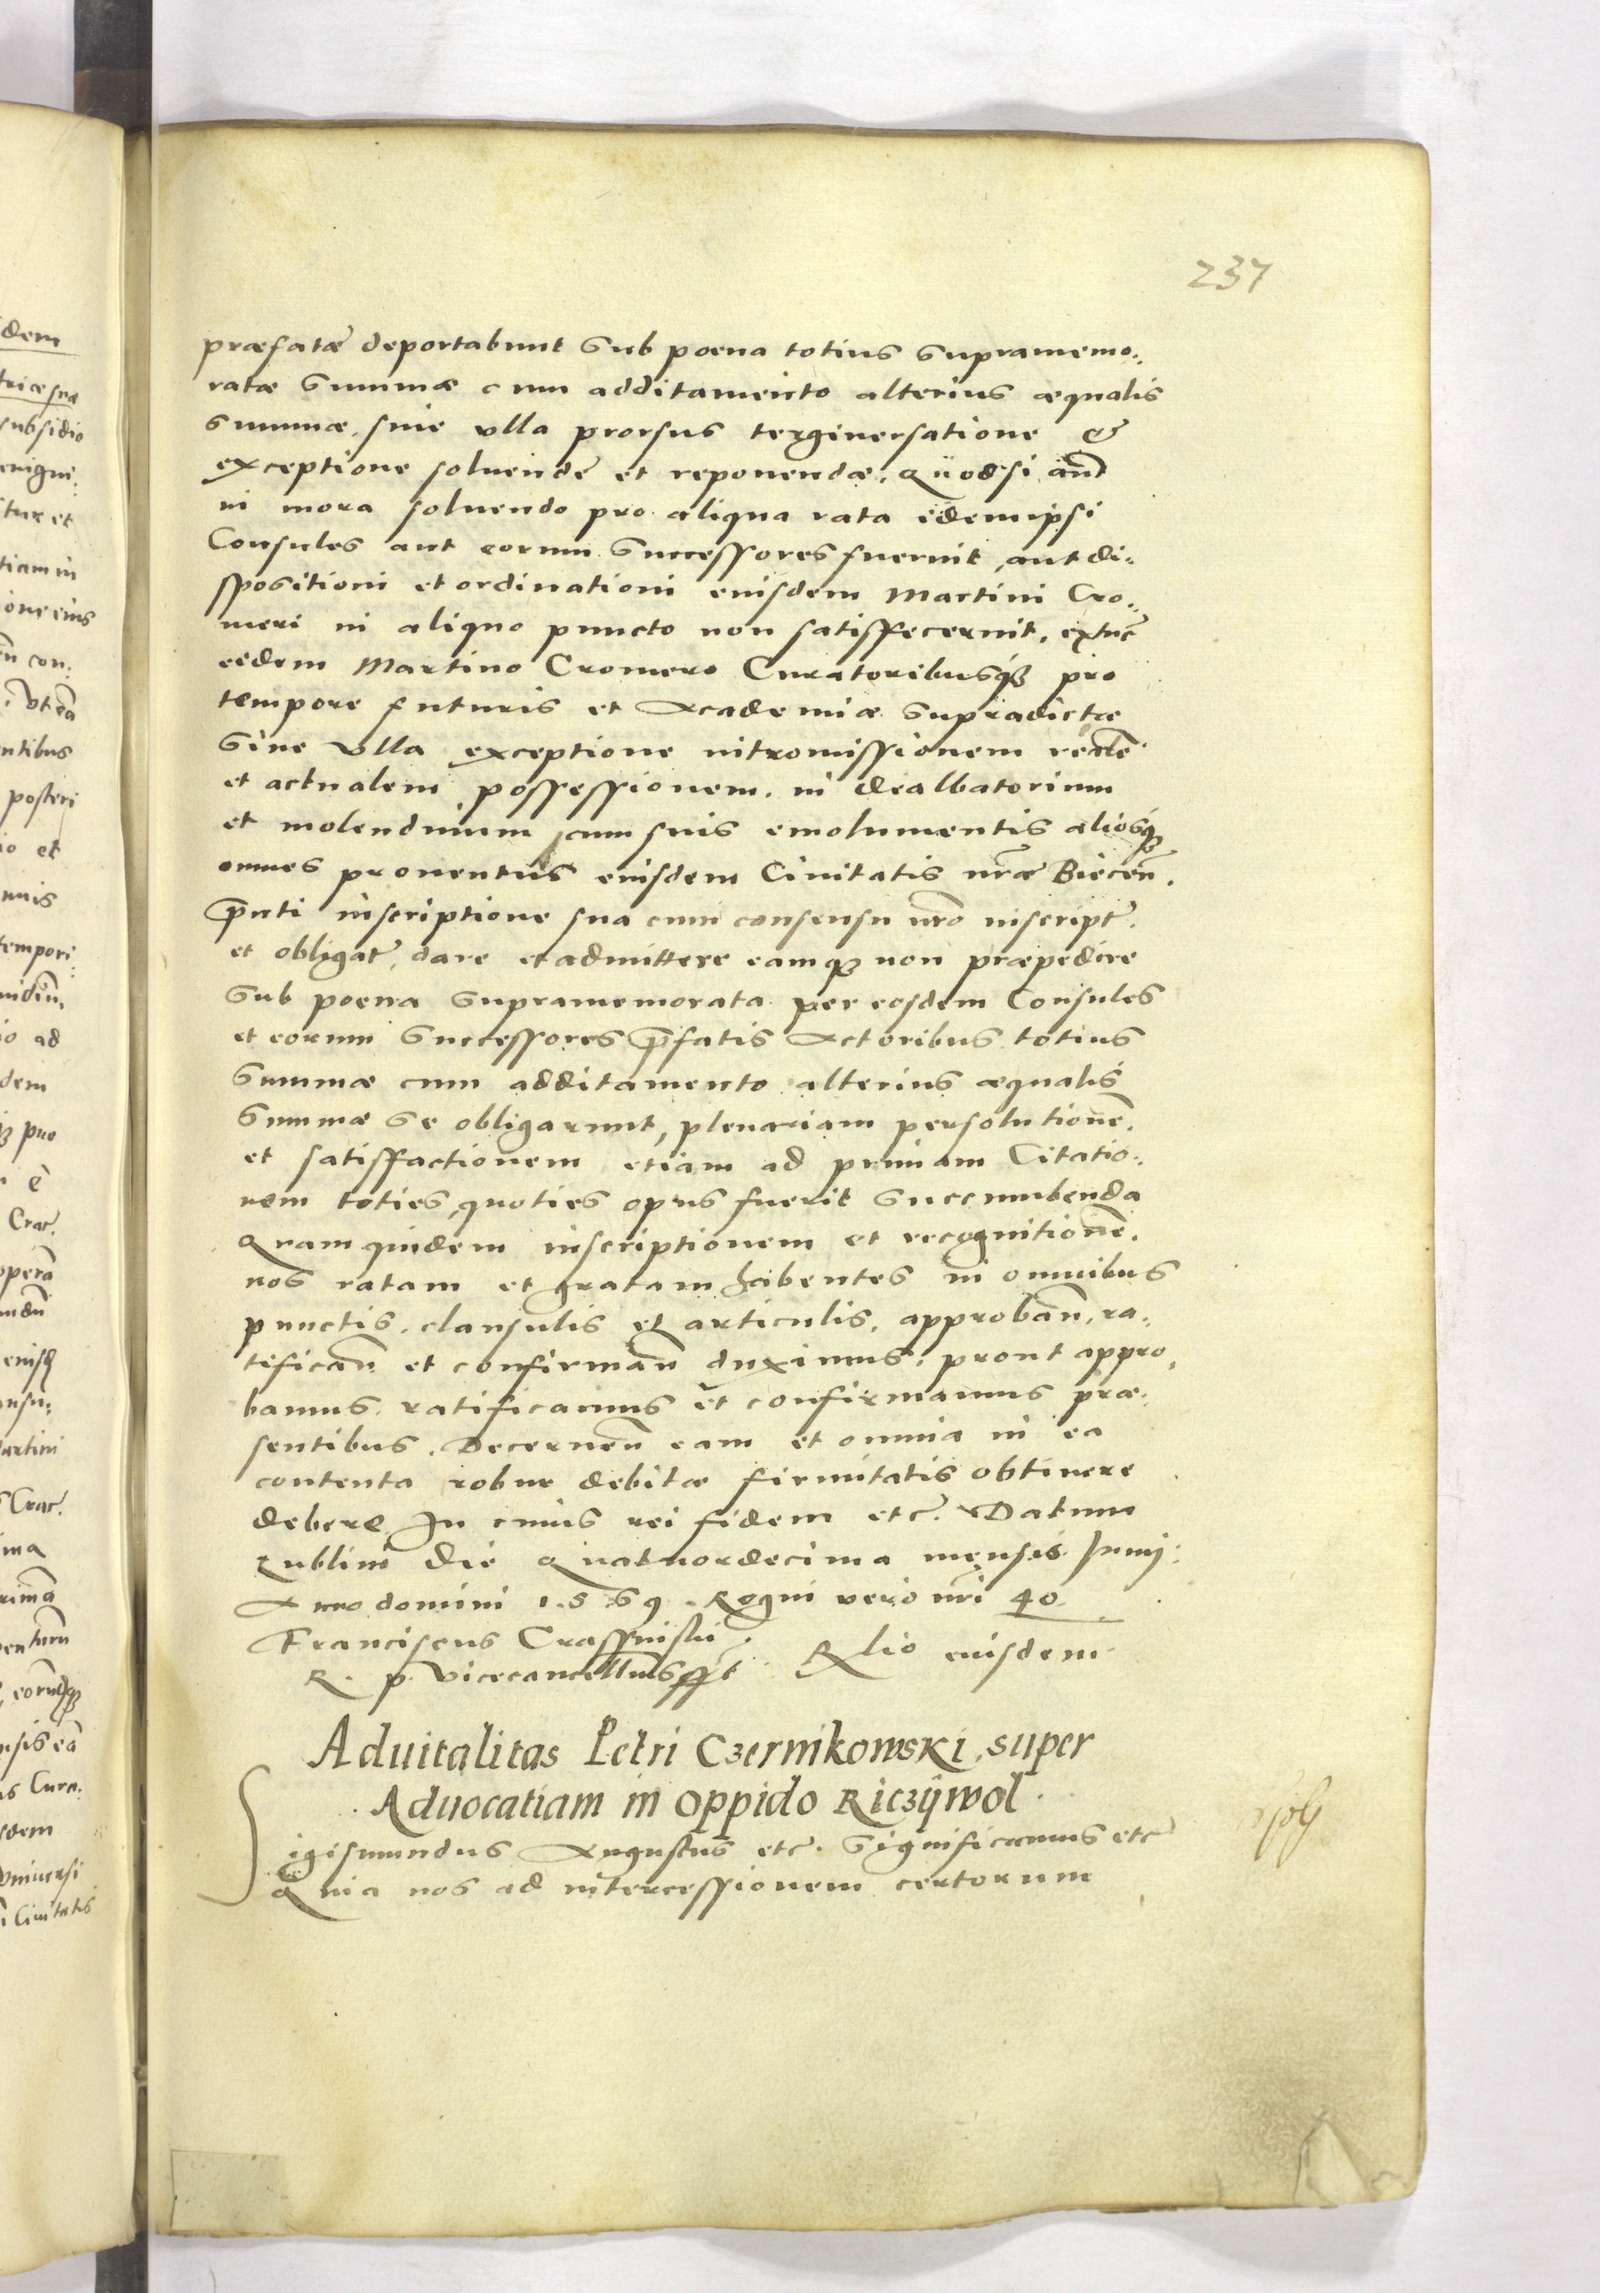 237
præfatæ deportabunt sub poena totius supramemo:
ratæ summæ cum additamento alterius æqualis
summæ, sine vlla prorsus tergiuersatione et
exceptione soluende et reponendæ. Quodsi aut
in mora soluendo pro aliqua rata idemipsi
Consules aut eorum Successores fuerint, aut di:
spositioni et ordinationi eiusdem Martini Cro:
meri in aliquo puncto non satisffecerint, extūc
eidem Martino Cromero Curatoribusq́ȝ pro
tempore futuris et Academiæ supradictæ
Sine vlla exceptione intromissionem realē
et actualem possessionem. in dealbatorium
et molendinum cum suis emolumentis aliosq́ȝ
omnes prouentus eiusdem Ciuitatis nr̃æ Biecen̄.
p̄nti inscriptione sua cum consensu nr̃o inscript̃.
et obligat̃, dare et admittere eamqȝ non præpedire
Sub poena supramemorata per eosdem Consules
et eorum Successores p̄fatis Actoribus totius
Summæ cum additamento alterius æqualis
Summæ se obligarunt, plenariam persolutionē.
et satisffactionem etiam ad primam Citatio:
nem toties, quoties opus fuerit succumbenda
Quam quidem inscriptionem et recognitionē.
nos ratam et gratam habentes in omnibus
punctis, clausulis et articulis, approban̄, ra:
tifican̄ et confirman̄ duximus, prout appro
bamus, ratificamus et confirmamus præ:
sentibus. Decernen̄ eam et omnia in ea
contenta robur debitæ firmitatis obtinere
debere In cuius rei fidem etc̃. Datum
Lublini die Quatuordecima mensis Junij:
Anno domini 1569. Regni vero nr̃i 40
Franciscus Crassinskii
R. p. Vicecancellarius sst Rl̃io eiusdem
Aduitalitas Petri Czernikowski, super
Aduocatiam in oppido Riczÿwol.
Sigismundus Augustus etc. Significamus etc̃
Quia nos ad intercessionem certorum